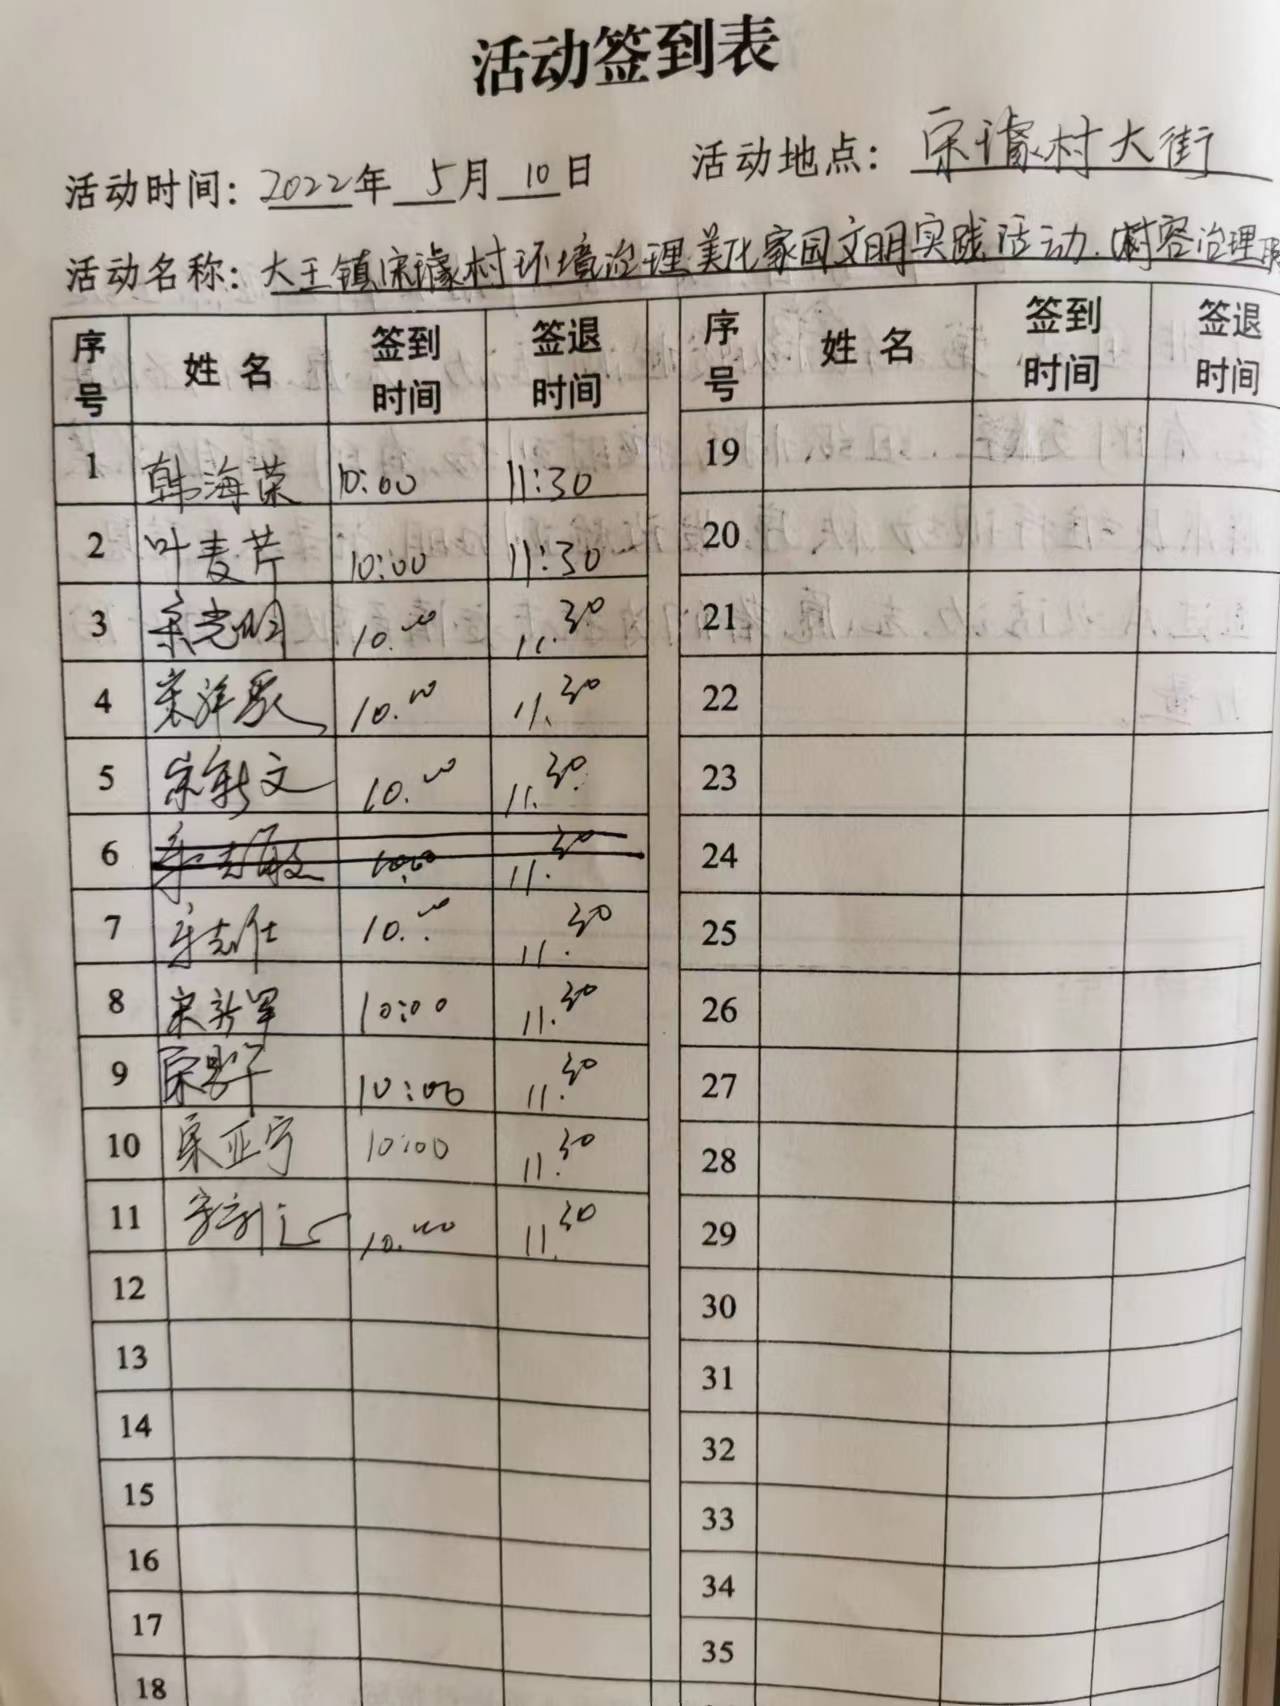 活动签到表
活动时间：2022年 5月 10日 活动地点：宋璩村大街
活动名称：大王镇宋璩村环境治理美化家园文明实践活动.(村容治理
序号 姓名 签到时间 签退时间 序号 姓名 签到时间 签退时间
1 韩海荣 10:00 11:30 19
2 叶麦芹 10:00 11:30 20
3 宋光明 10.00 11.30 21
4 宋洋 10.00 11.30 22
5 宋新文 10.00 11.30 23
6 宋志敏 10:00 11.30 24
7 宋志仕 10.00 11.30 25
8 宋新军 10:00 11.30 26
9 宋 10:00 11.30 27
10 宋亚宁 10:00 11.30 28
11 10.00 11.30 29
12 30
13 31
14 32
15 33
16 34
17 35
18